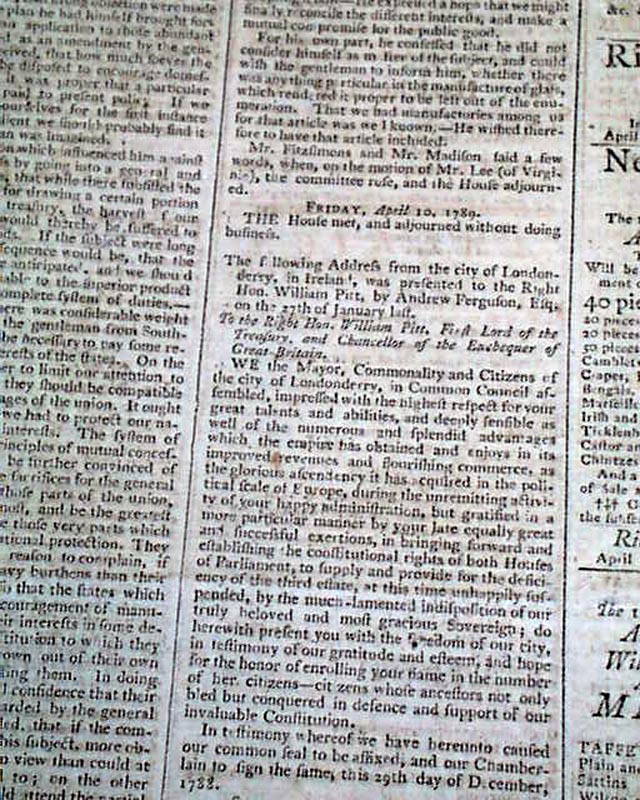 plan he had himself brought fore
application to those abundant
as an amendment by the gen-
ceived, that how much soever the
be disposed to encourage domes-
was proper that a particular
part to present policy. If we
ourselves for the first instance
dient we should probably find it
an was imagined.
on which influenced him against
s by going into a general and
that while these subsisted the
for drawing a certain portion
treasury, the harvest of our
would thereby be suffered to
ds. If the subject were long
equence would be, that the
anticipated, and we should
able to the superior product
omplete system of duties.—
ere was considerable weight
the gentleman from South-
be necessary to pay some re-
erests of the states. On the
er to limit our attention to
they should be compatible
ages of the union. It ought
we had to protect our na-
interests. The system of
rinciples of mutual concef-
be further convinced of
e sacrifices for the general
those parts of the union,
most, and be the greatest
e those very parts which
ational protection. They
reason to complain, if
avy burthens than their
n that the states which
couragement of manu-
ir interests in some de-
titution to which they
own out of their own
ing them. In doing
l confidence that their
arded by the general
led, that if the com-
his subject, more ob-
o view than could at
l to; on the other
ld attend the partial
He expected a hope that we might
finally reconcile the different interests, and make a
mutual compromise for the public good.
For his own part, he confessed that he did not
consider himself as m ster of the subject, and could
wish the gentleman to inform him, whether there
was any thing particular in the manufacture of glass,
which rendered it proper to be left out of the enu-
meration. That we had manufactories among us
for that article was well known.—He wished there-
fore to have that article included.
Mr. Fitzsimons and Mr. Madison said a few
words, when, on the motion of Mr. Lee (of Virgi-
nia), the committee rose, and the House adjourn-
ed.
FRIDAY, April 10, 1789.
THE House met, and adjourned without doing
business.
The following Address from the city of London-
derry, in Ireland, was presented to the Right
Hon. William Pitt, by Andrew Ferguson, Esq;
on the 27th of January last.
To the Right Hon. William Pitt, First Lord of the
Treasury, and Chancellor of the Exchequer of
Great-Britain.
WE the Mayor, Commonality and Citizens of
the city of Londonderry, in Common Council as-
sembled, impressed with the highest respect for your
great talents and abilities, and deeply sensible as
well of the numerous and splendid advantages
which the empire has obtained and enjoys in its
improved revenues and flourishing commerce, as
the glorious ascendency it has acquired in the poli-
tical scale of Europe, during the unremitting activi-
ty of your happy administration, but gratified in a
more particular manner by your late equally great
and successful exertions, in bringing forward and
establishing the constitutional rights of both Houses
of Parliament, to supply and provide for the defici-
ency of the third estate, at this time unhappily sus-
pended, by the much-lamented indisposition of our
truly beloved and most gracious Sovereign; do
herewith present you with the freedom of our city,
in testimony of our gratitude and esteem, and hope
for the honor of enrolling your name in the number
of her citizens—citizens whose ancestors not only
bled but conquered in defence and support of our
invaluable Constitution.
In testimony whereof we have hereunto caused
our common seal to be affixed, and our Chamber-
lain to sign the same, this 29th day of December,
1788.
&c.
Ri
April
No
The
A
Will be
ment
40 pi
20 pieces
20 pieces
50 pieces
Camblet
Crapes,
Bengals,
Marseill
Irish and
Ticklenb
Castor a
Chintze
And a
of Sale
††† C
the suff
Ri
April
The
A
Wi
M
TAFFE
Plain an
Sattins